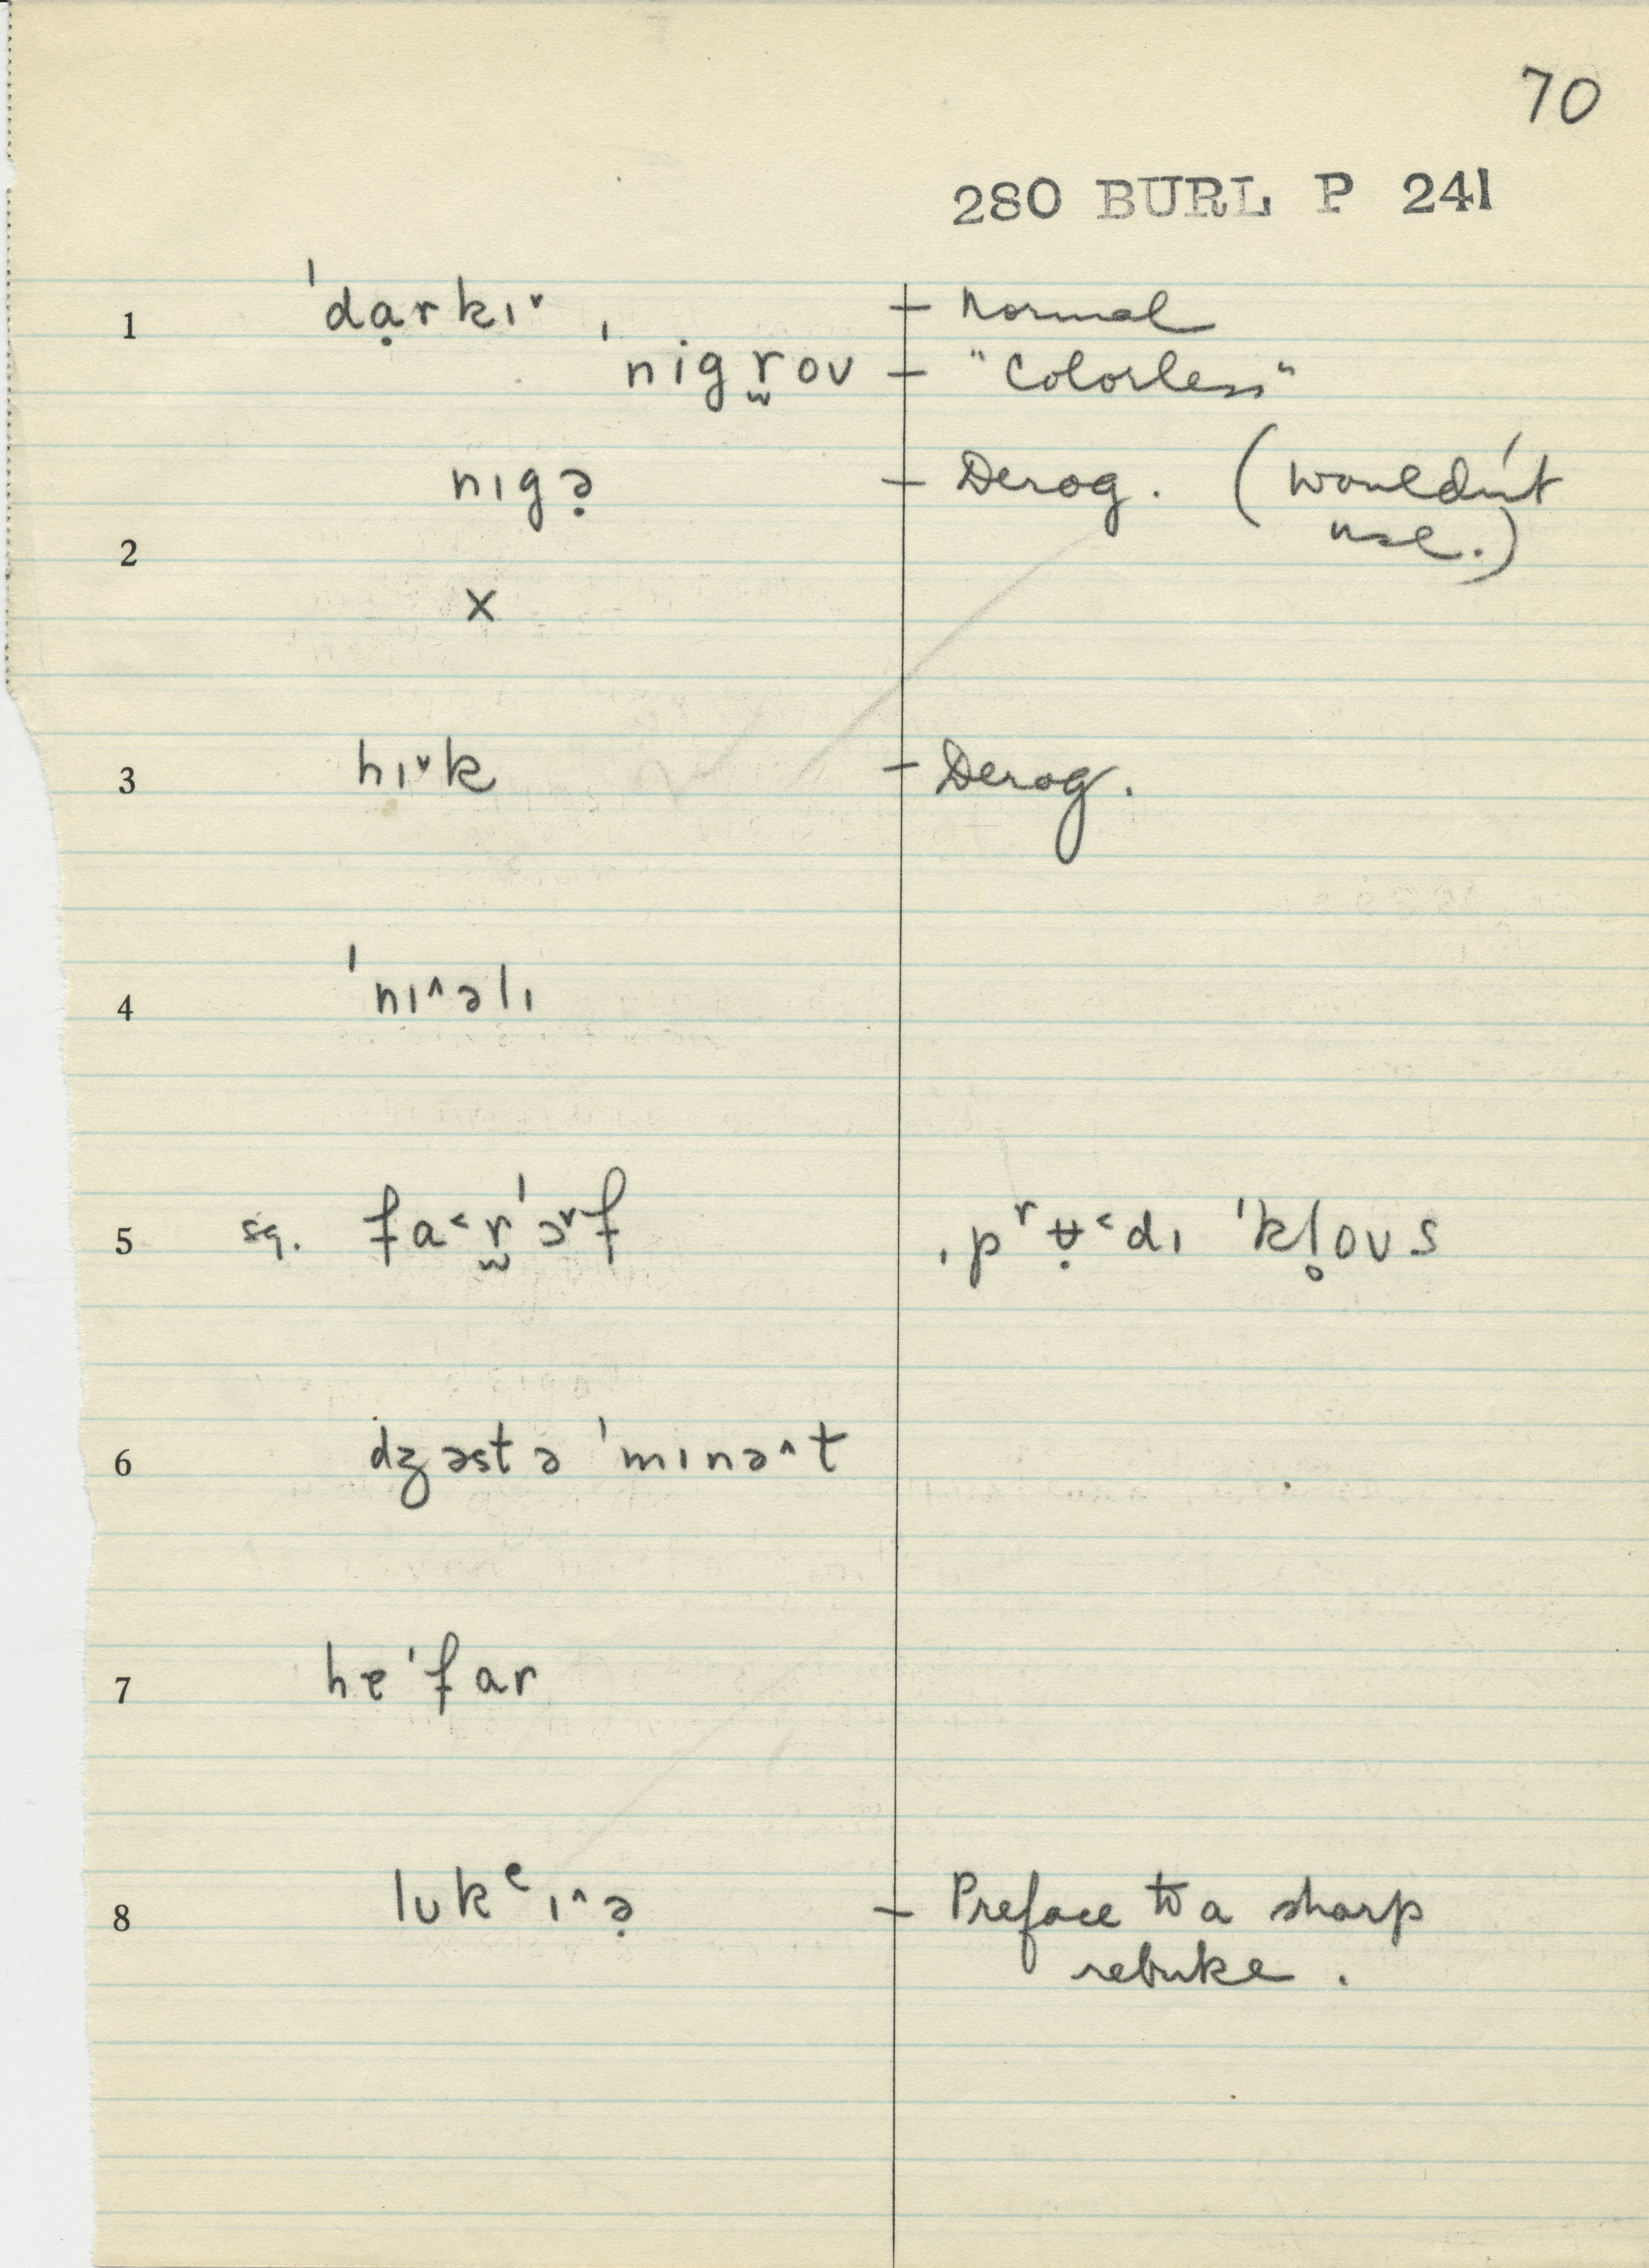 70
280 BURL P 241
1 ˈdạrkɪ˅ , — Normal
ˈnigr̯ov — "Colorless"
nɪgə̣ — Derog. (wouldn't
use.)
2
x
3 hɪ˅k — Derog.
4 ˈnɪ^əlɪ
5 sq. fa˂r̯ˈɔ˅f ˌpʳʉ̣˂dɪ ˈkl̥oʊs
6 dʒəst ə ˈmɪnə^t
7 heˈfar
8 lʊk ᵉɪ^ə̣ — Preface to a sharp
rebuke.